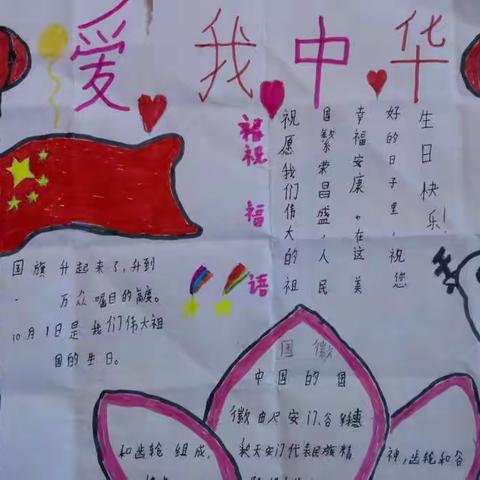 爱我中华
祝福语
祝愿我们伟大的祖
国繁荣昌盛,人民
幸福安康。在这美
好的日子里,祝您
生日快乐!
国旗升起来了,升到
万众瞩目的高度。
10月1日是我们伟大祖
国的生日。
国徽
中国的国
徽由天安门、谷穗
和齿轮组成,
天安门代表民族精
神,齿轮和谷